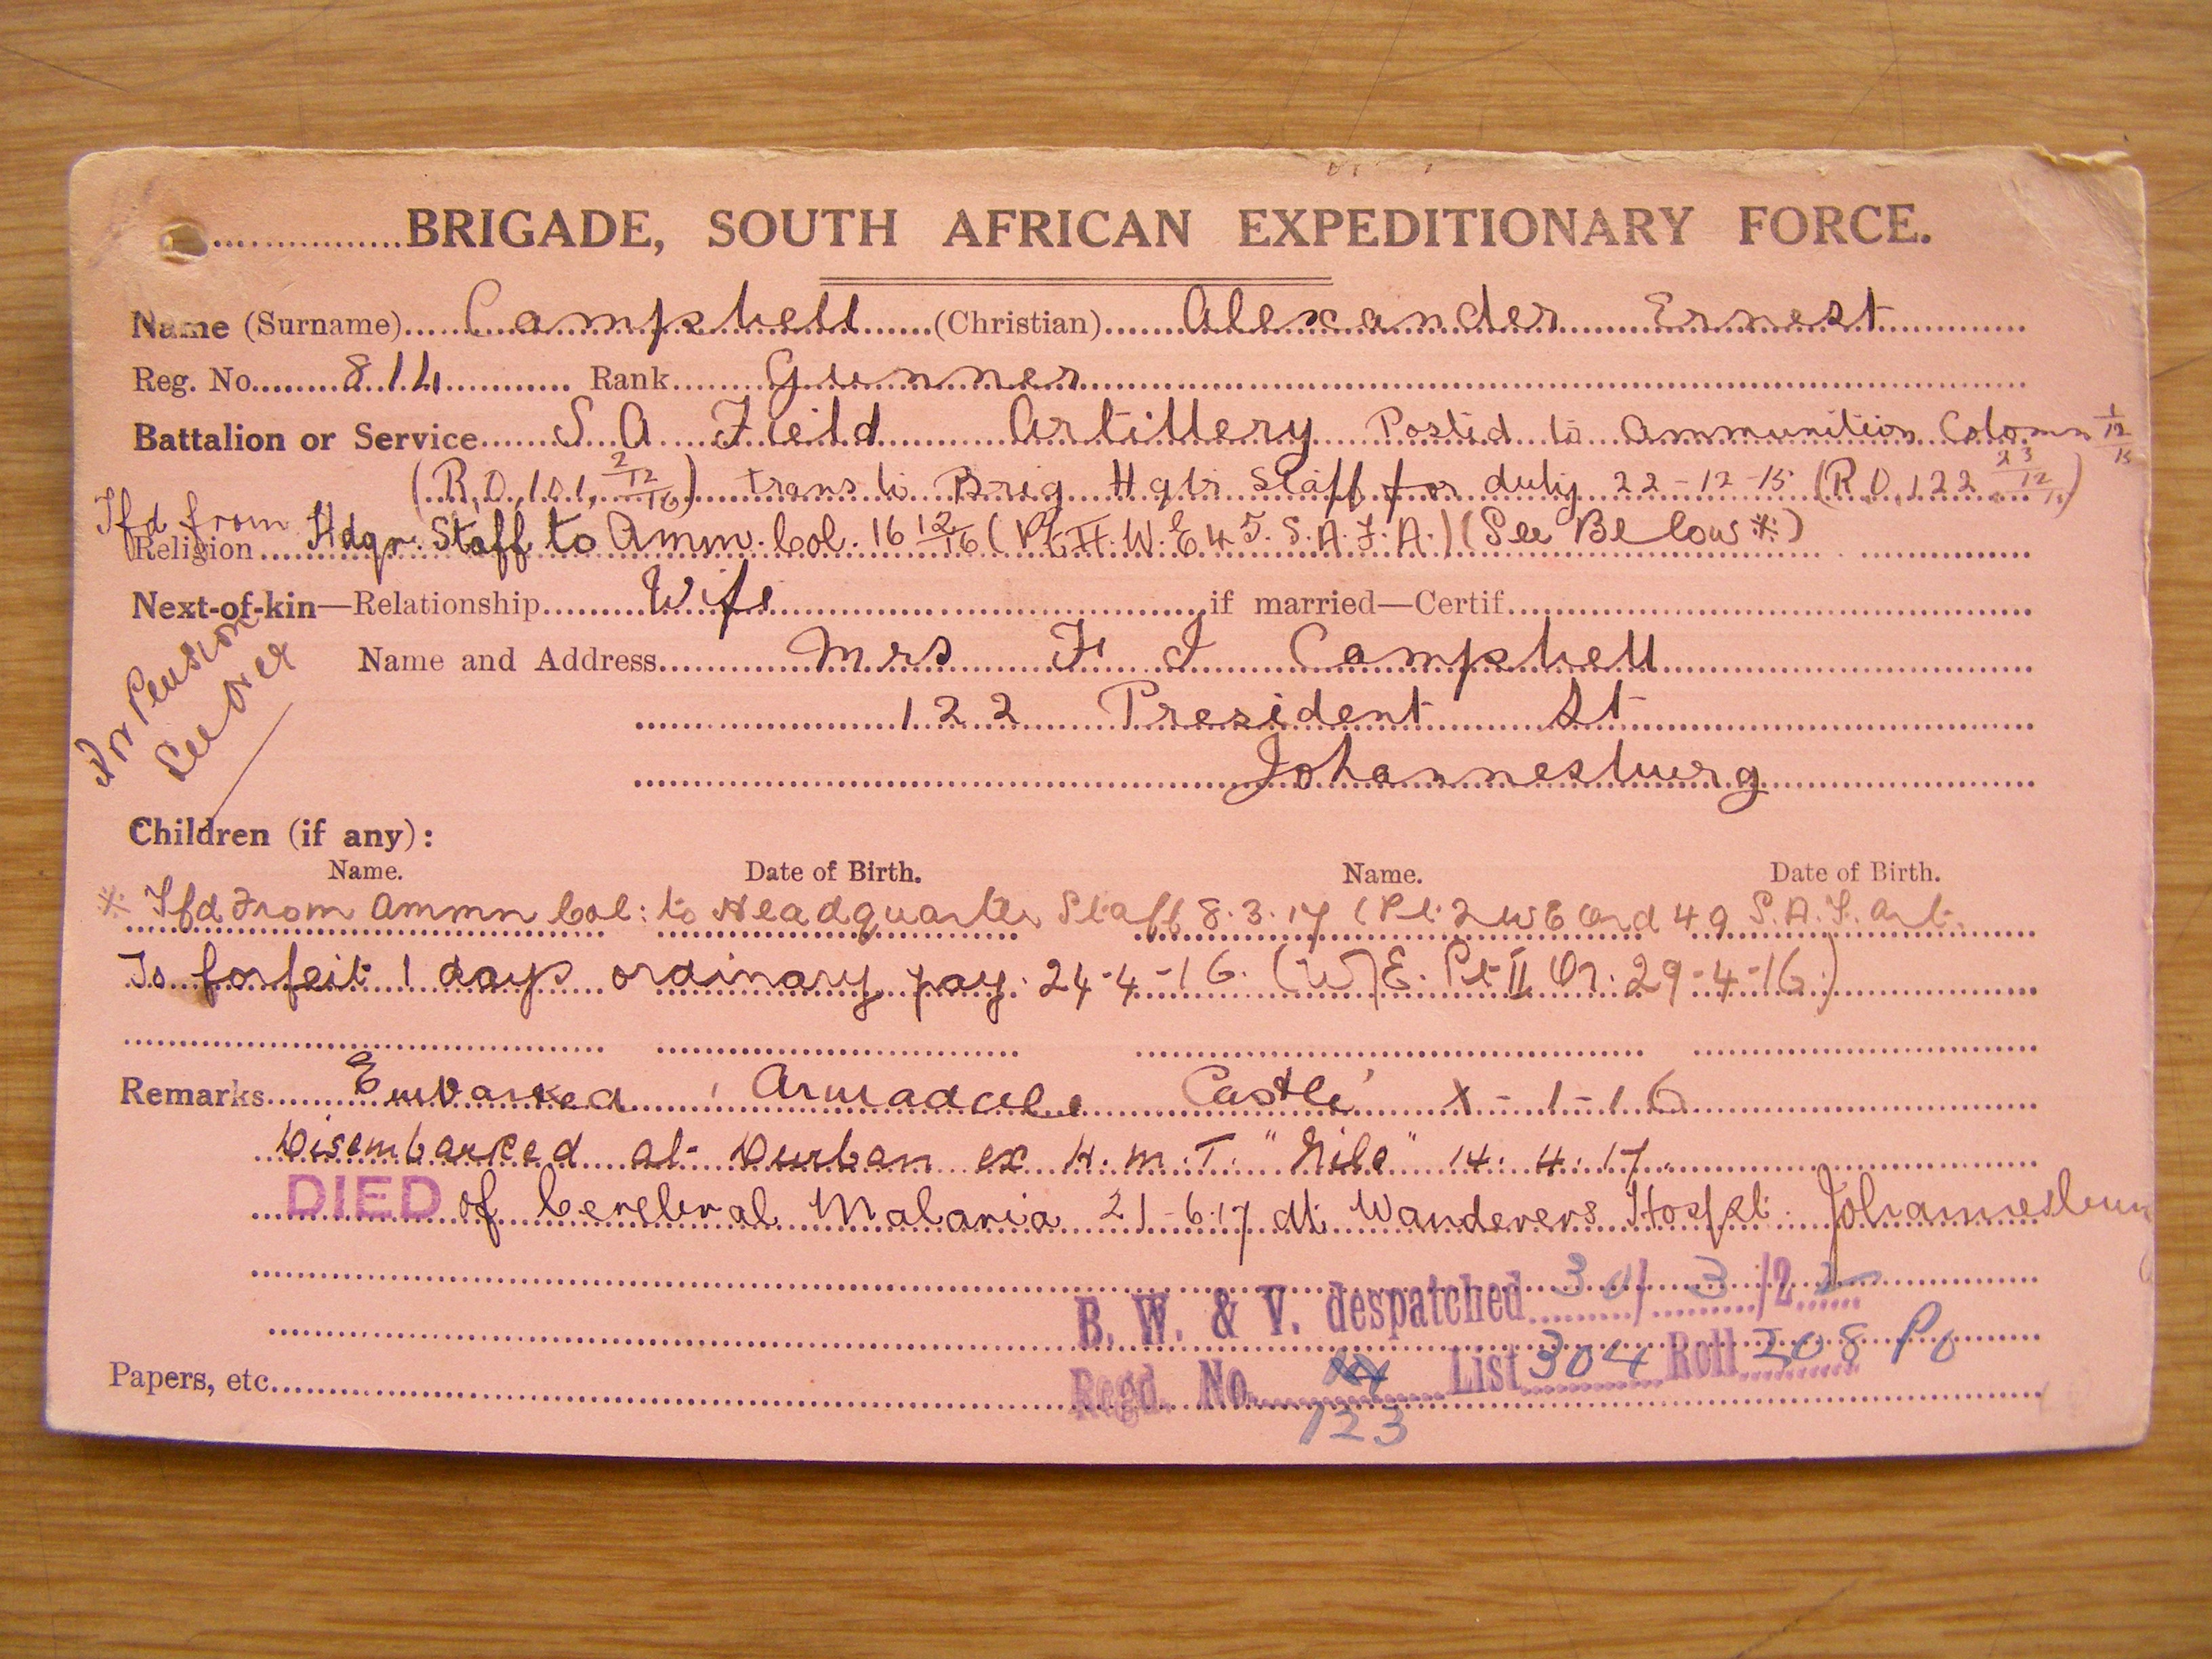 BRIGADE, SOUTH AFRICAN EXPEDITIONARY FORCE.
Name (Surname) Campbell (Christian) Alexander Ernest
Reg. No. 814 Rank Gunner
Battalion or Service S A Field Artillery Posted to Ammunition Colomn 1/12/15
(R.O. 101, 2/12/16) trans to Brig Hqtr Staff for duty 22-12-15 (R.O. 122 23/12/15)
Tfd from Hdqr. Staff to Amm. Col. 16 12/16 (Pt II. W. E 45. S. A. F. A.) (See Below *)
Religion
Next-of-kin—Relationship Wife if married—Certif.
Name and Address Mrs F J Campbell
122 President St
Johannesburg
For Pension
See over
Children (if any):
Name. Date of Birth. Name. Date of Birth.
* Tfd From Ammn Col: to Headquarter Staff 8.3.17 (Pt. 2 W E Ord 49 S.A.F. Art.
To forfeit 1 days ordinary pay. 24-4-16. (W/E. Pt II Or. 29-4-16.)
Remarks Embarked 'Armadale Castle' 8-1-16
Disembarked at Durban ex H.M.T. "Nile" 14.4.17.
DIED of Cerebral Malaria 21-6-17 at Wanderers Hospt. Johannesburg
B. W. & V. despatched 30/3/22
Regd. No. List 304 Roll 208 Po
123
Papers, etc.